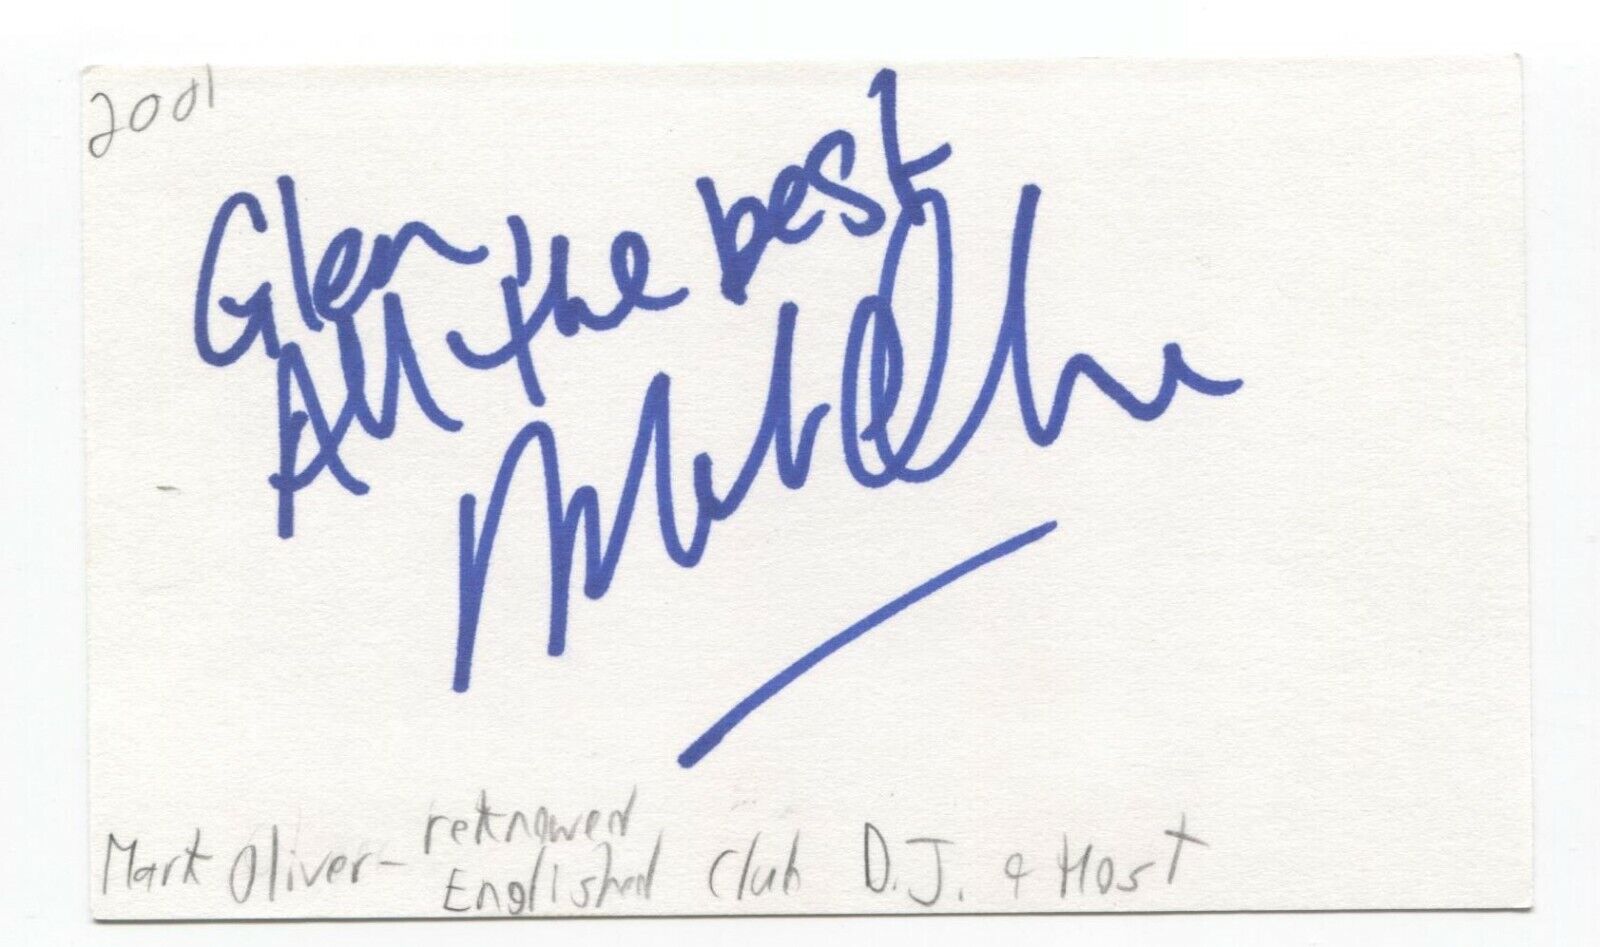 2001
Glen
All the best
Mark Oliver
Mark Oliver - reknowned
Englished Club D.J. & Host